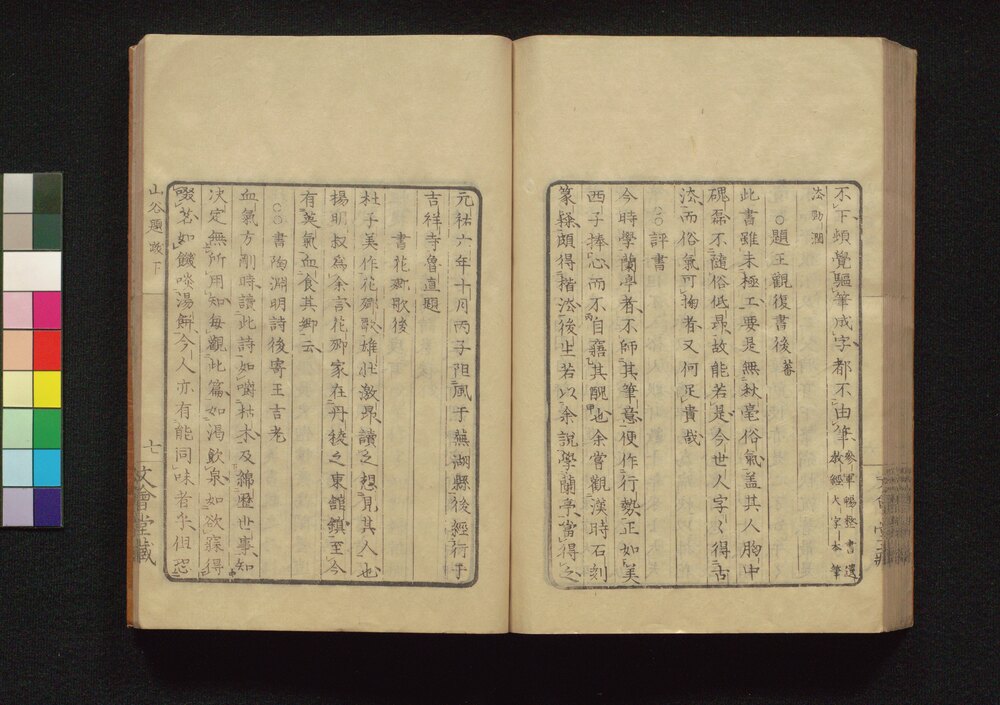 不下頓覺驅筆成字都不由筆
法勁澀
○題王觀復書後蕃
此書雖未極工要是無秋毫俗氣蓋其人胸中
磈磊不隨俗低昂故能若是今世人字字得古
法而俗氣可掬者又何足貴哉
○○評書
今時學蘭亭者不師其筆意便作行勢正如美
西子捧心而不自寤其醜也余嘗觀漢時石刻
篆隸頗得楷法後生若以余說學蘭亭當得之
元祐六年十月丙子阻風于蕪湖縣後經行于
吉祥寺魯直題
書花卿歌後
杜子美作花卿歌雄壯激昂讀之想見其人也
楊明叔為余言花卿家在丹稜之東館鎮至今
有英氣血食其鄉云
○○書陶淵明詩後寄王吉老
血氣方剛時讀此詩如嚼枯木及綿歷世事知
決定無所用知每觀此篇如渴飲泉如欲寐得
啜茗如饑啖湯餅今人亦有能同味者乎但恐
山谷題跋下
七
文會堂藏